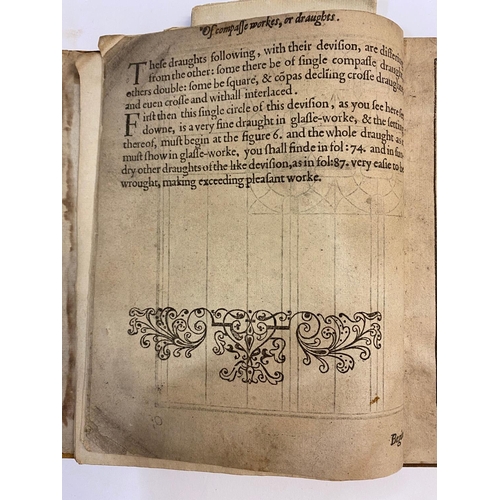 Of compasse workes, or draughts.
These draughts following, with their devision, are differing
from the other: some there be of single compasse draughts,
others double: some be square, & cōpas declining crosse draughts
and euen crosse and withall interlaced.
First then this single circle of this devision, as you see here set
downe, is a very fine draught in glasse-worke, & the setting
thereof, must begin at the figure 6. and the whole draught as it
must show in glasse-worke, you shall finde in fol: 74. and in sun
dry other draughts of the like devision, as in fol: 87. very easie to be
wrought, making exceeding pleasant worke.